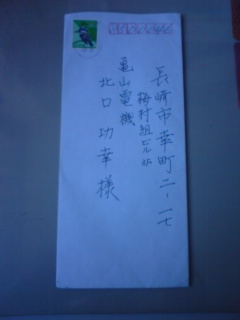 長崎市幸町二-一七
梅村組ビル
亀山電機
北口功幸様